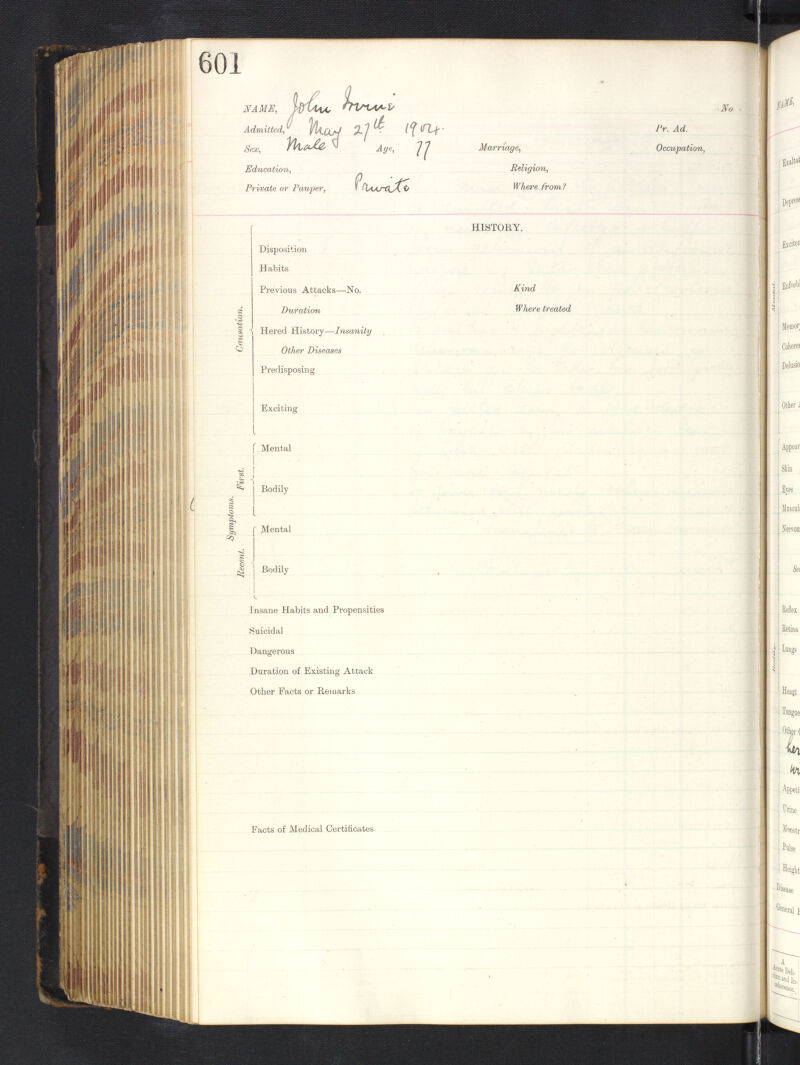 601
NAME, John Irvine No
Admitted, May 27th 1904. Pr. Ad.
Sex, Male Age, 77 Marriage, Occupation,
Education, Religion,
Private or Pauper, Private Where from?
HISTORY.
Causation.
Disposition
Habits
Previous Attacks—No. Kind
Duration Where treated
Hered History—Insanity
Other Diseases
Predisposing
Exciting
Symptoms.
First.
Mental
Bodily
Recent.
Mental
Bodily
Insane Habits and Propensities
Suicidal
Dangerous
Duration of Existing Attack
Other Facts or Remarks
Facts of Medical Certificates
NAME,
Exaltat
Depress
Excitem
Enfeebl
Mental.
Memor
Coheren
Delusio
Other
Appear
Skin
Eyes
Muscul
Nervou
Se
Reflex
Retina
Lungs
Bodily.
Heart
Tongue
Other
Appeti
Urine
Menstr
Pulse
Height
Disease
General
A
Acute Deli-
rium and In-
coherence.